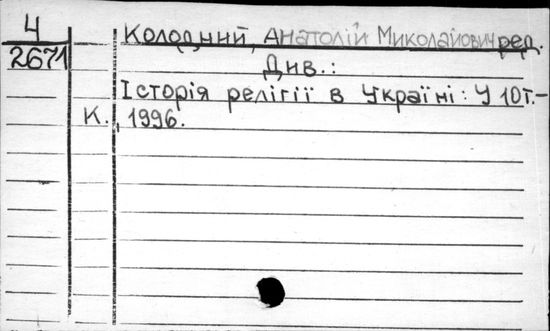 Ч
2671
Колодний, Анатолій Миколайович ред.
Див.:
Історія релігії в Україні: У 10т.-
К., 1996.